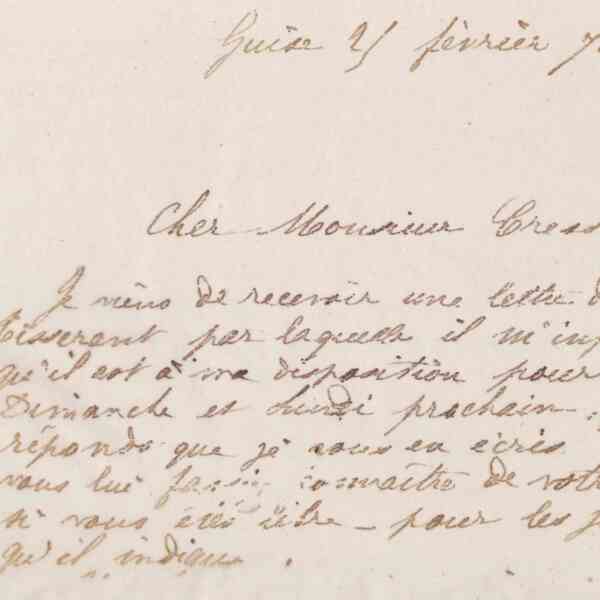 Guise 25 février 7
Cher Monsieur Cress
Je viens de recevoir une lettre d
Tisserant par laquelle il m'inf
qu'il est à ma disposition pour
Dimanche et Lundi prochain.
réponds que je vous en écris
vous lui fassiez connaître de votr
si vous êtes libre – pour les j
qu'il indique.